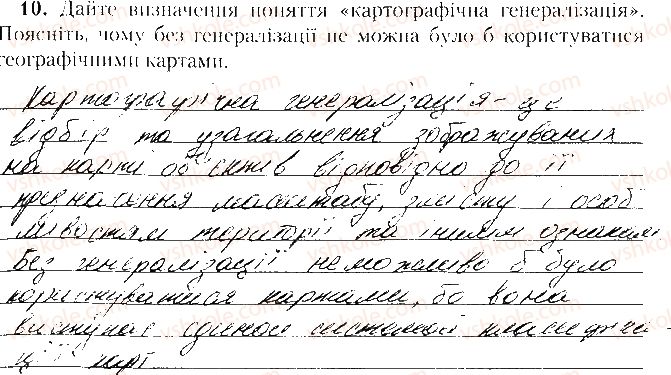 10. Дайте визначення поняття «картографічна генералізація».
Поясніть, чому без генералізації не можна було б користуватися
географічними картами.
Картографічна генералізація - це
відбір та узагальнення зображуваних
на карти об'єктів відповідно до її
призначення масштабу, змісту і особ
ливостям території та іншим ознакам
Без генералізації неможливо б було
користуватися картами, бо вона
виступає єдиною системой класифіка
ції карт